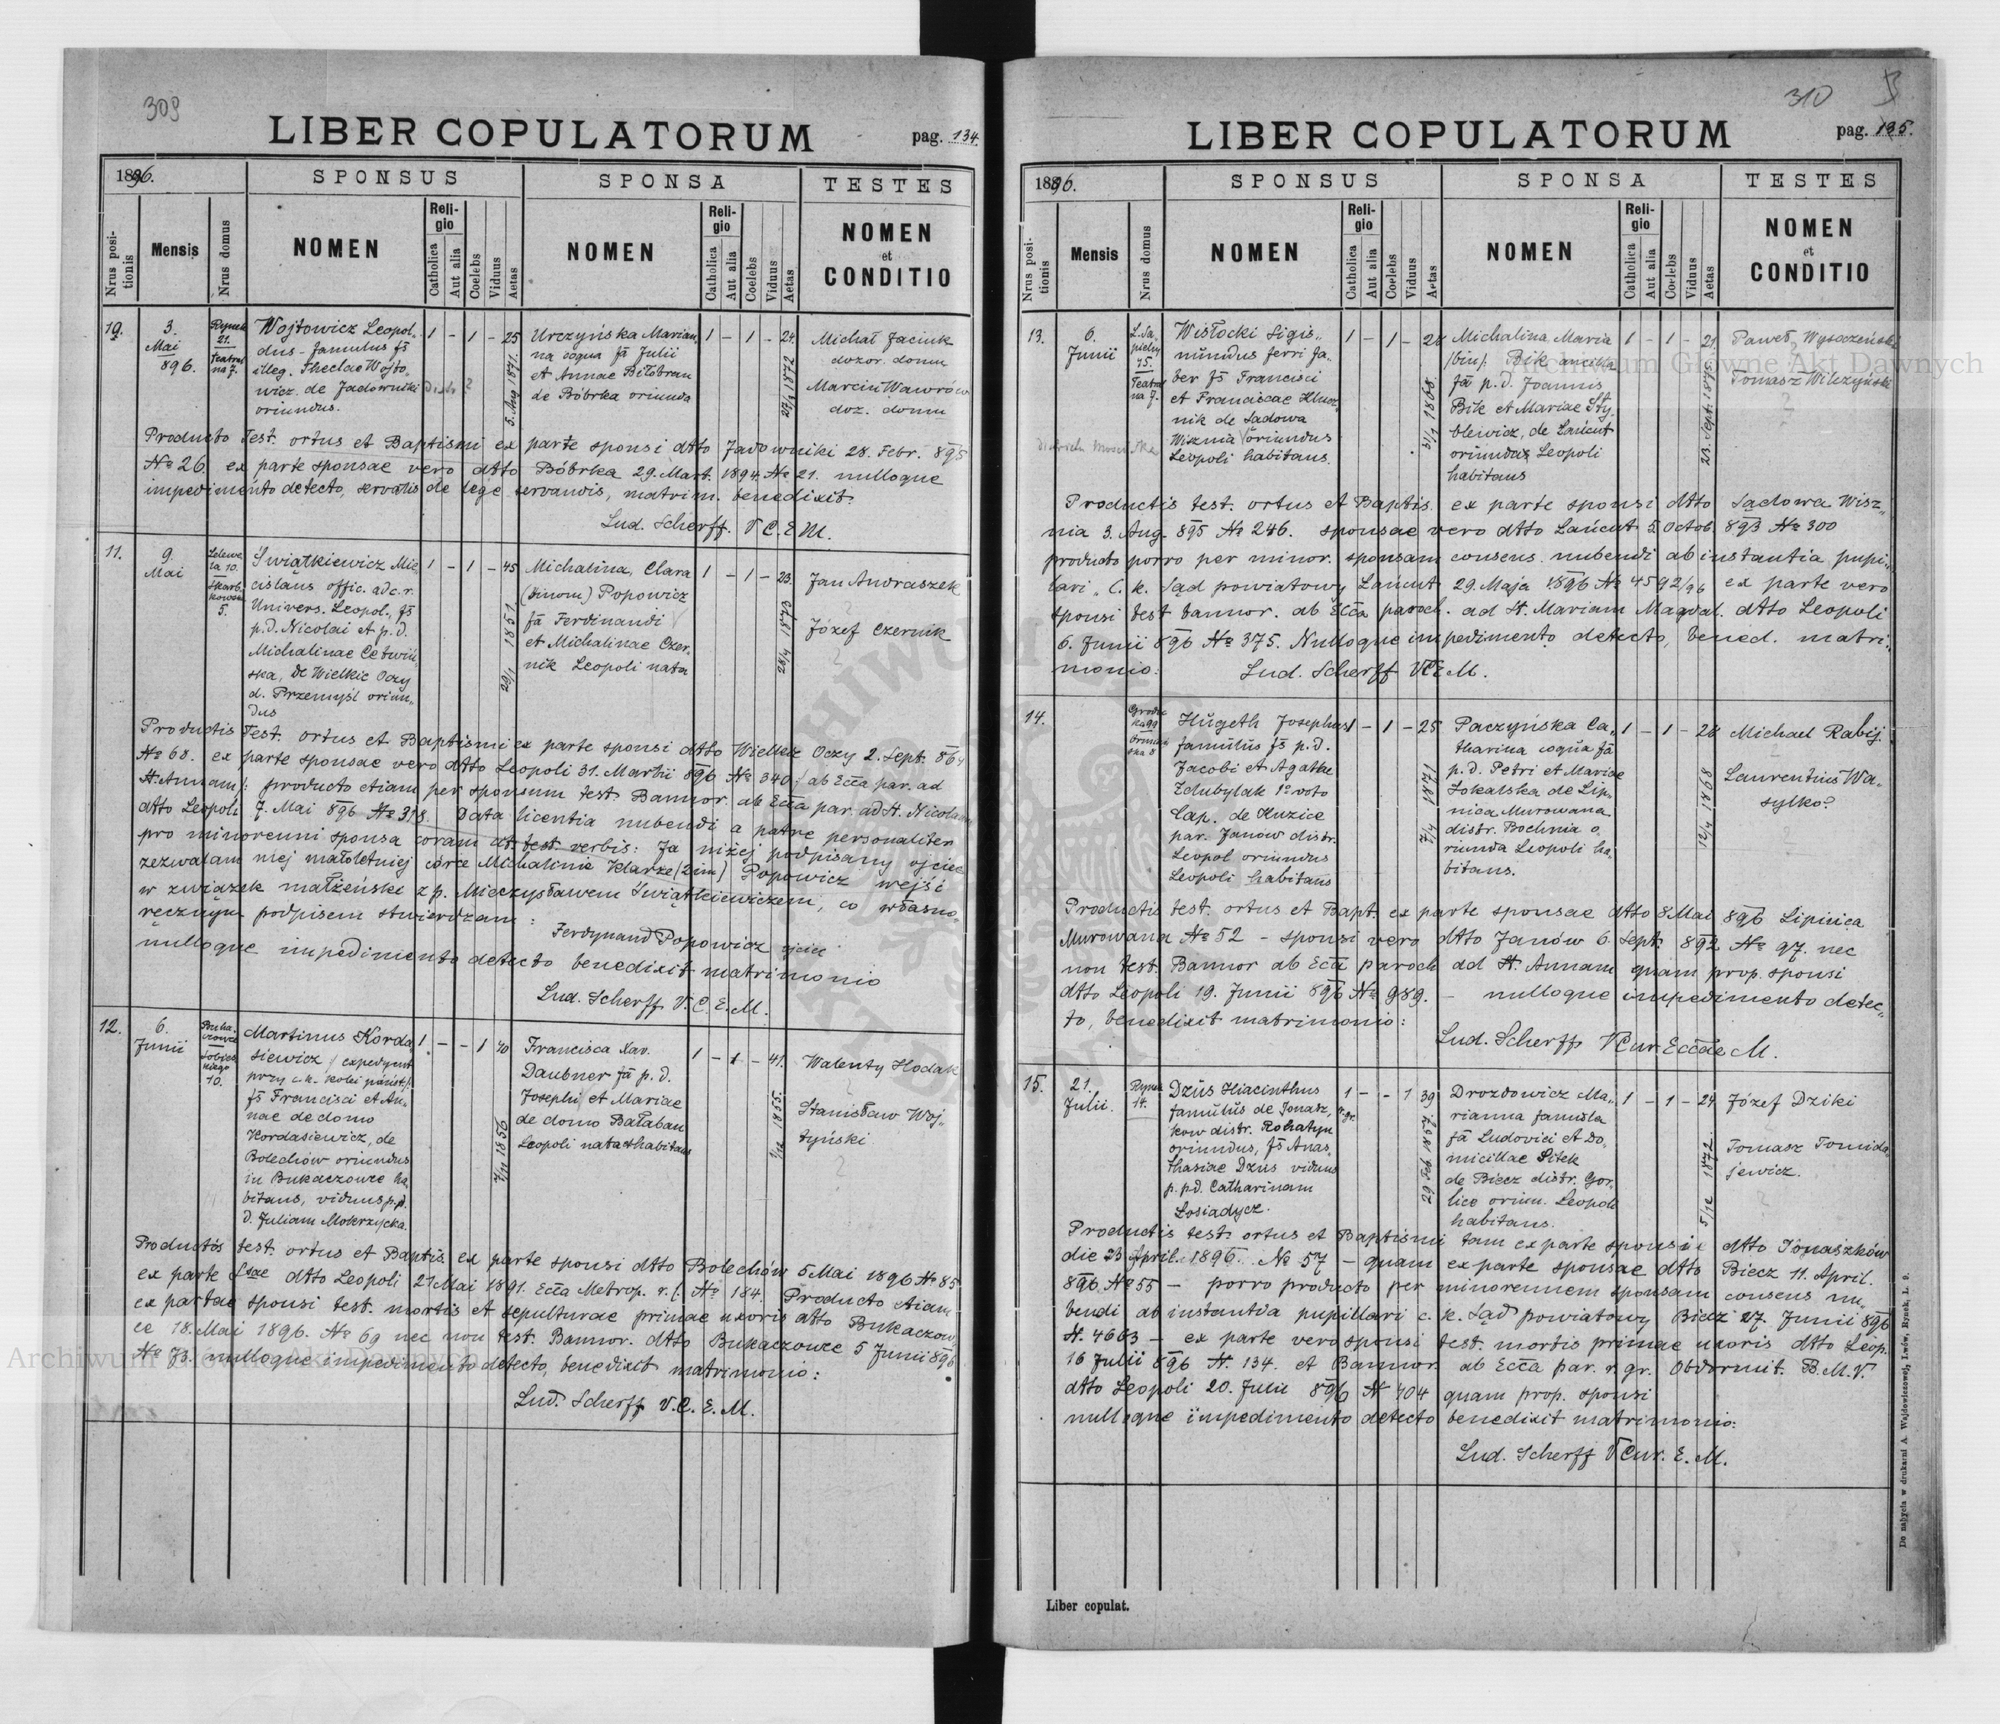 309
LIBER COPULATORUM
pag. 134.
1896.
SPONSUS
SPONSA
TESTES
Nrus positionis
Mensis
Nrus domus
NOMEN
Religio
Catholica
Aut alia
Coelebs
Viduus
Aetas
NOMEN
Religio
Catholica
Aut alia
Coelebs
Viduus
Aetas
NOMEN
et
CONDITIO
3.
Mai
896.
Rynek
21.
Teatral
na 7.
Wojtowicz Leopol„
dus - famulus fs
illeg. Theclae Wojto„
wicz de Jadowniki
oriundus.
1 - 1 - 25
5. Aug 1871.
Urczyńska Marian„
na coqua fa Julii
et Annae Biłobran
de Bóbrka oriunda
1 - 1 - 24.
1872
Michał Jaciuk
dozor. domu
Marcin Wawrów
doz. domu
Producto Test. ortus et Baptismi ex parte sponsi dtto Jadowniki 28. Febr. 895
No 26. ex parte sponsae vero dtto Bóbrka 29. Mart. 1894. No 21. nulloque
impedimento detecto, servatis de lege servandis, matrim. benedixit.
Lud. Scherff. V. C. E. M.
11.
9.
Mai
Lelewe
la 10.
Skarb„
kowska
5.
Świątkiewicz Mie„
cislaus offic. ad c. r.
Univers. Leopol., fs
p. d. Nicolai et p. d.
Michalinae Cetwiń„
ska, de Wielkie Oczy
d. Przemyśl oriun„
dus
1 - 1 - 45
29/1 1851
Michalina, Clara
(binom) Popowicz
fa Ferdinandi
et Michalinae Czer„
nik Leopoli nata
1 - 1 - 23.
28/4 1873
Jan Andraszek
Józef Czernik
Productis Test. ortus et Baptismi ex parte sponsi dtto Wielkie Oczy 2. Sept. 864
No 68. ex parte sponsae vero dtto Leopoli 31. Martii 896 No 340 / ab Ecca par. ad
St. Annam /: producto etiam per sponsum test. Bannor. ab Ecca par. ad St. Nicolaum
dtto Leopoli 7. Mai 896 No 318. Data licentia nubendi a patre personaliter
pro minorenni sponsa coram dt. test verbis: Ja niżej podpisany ojciec
zezwalam mej małoletniej córce Michalinie Klarze (2 im) Popowicz wejść
w związek małżeński z p. Mieczysławem Świątkiewiczem, co własno„
ręcznym podpisem stwierdzam:
Ferdynand Popowicz ojciec
nulloque impedimento detecto benedixit matrimonio
Lud. Scherff V. C. E. M.
12.
6.
Junii
Buka
czowce
Sobies
kiego
10.
Martinus Korda
siewicz / expedyent
przy c. k. kolei państ/:
fs Francisci et An„
nae de domo
Kordasiewicz, de
Bolechów oriundus
in Bukaczowce ha„
bitans, viduus p. p.
d. Juliam Mokrzycka.
1 - - 1 40
1856
Francisca Xav.
Daubner fa p. d.
Josephi et Mariae
de domo Bałaban
Leopoli nata et habitans
1 - 1 - 41.
1/12 1855.
Walenty Hodak
Stanisław Woj„
tyński
Productis test. ortus et Baptis. ex parte sponsi dtto Bolechów 5 Mai 1896 No 85
ex parte Ssae dtto Leopoli 21 Mai 1891. Ecca Metrop. r. l. No 184. Producto etiam
ex partae sponsi test. mortis et sepulturae primae uxoris dtto Bukaczow„
ce 18. Mai 1896. No 69 nec non test. Bannor. dtto Bukaczowce 5 Junii 896
No 73. nulloque impedimento detecto, benedixit matrimonio:
Lud. Scherff V. C. E. M.
310
LIBER COPULATORUM
pag. 135.
1896.
SPONSUS
SPONSA
TESTES
Nrus positionis
Mensis
Nrus domus
NOMEN
Religio
Catholica
Aut alia
Coelebs
Viduus
Aetas
NOMEN
Religio
Catholica
Aut alia
Coelebs
Viduus
Aetas
NOMEN
et
CONDITIO
13.
6.
Junii
L. Sa„
piehy
45.
Teatral
na 7.
Wisłocki Sigis„
mundus ferri fa„
ber fs Francisci
et Franciscae Klucz„
nik de Sądowa
Wisznia oriundus
Leopoli habitans.
1 - 1 - 28
31/1 1868.
Michalina Maria
/bin/. Bik ancilla
fa p. d. Joannis
Bik et Mariae Sty„
blewicz, de Łańcut
oriunda Leopoli
habitans
1 - 1 - 21
23. Sept. 1875.
Paweł Wysoczeński
Tomasz Wilczyński
Productis test. ortus et Baptis. ex parte sponsi dtto Sądowa Wisz„
nia 3. Aug. 895 No 246. sponsae vero dtto Łańcut 5 Octob. 893 No 300
producto porro per minor. sponsam consens. nubendi ab instantia pupi„
lari „C. k. Sąd powiatowy Łańcut 29. Maja 1896 No 4592/96 ex parte vero
sponsi test bannor. ab Ecca paroch. ad St. Mariam Magdal. dtto Leopoli
6. Junii 896 No 375. Nulloque impedimento detecto, bened. matri„
monio:
Lud. Scherff V C E M.
14.
Grodec
ka 99
Ormiań
ska 8
Hügeth Josephus
famulus fs p. d.
Jacobi et Agathe
Zdubylak 1o voto
Cap. de Kuzice
par. Janów distr.
Leopol oriundus
Leopoli habitans
1 - 1 - 25
7/4 1871
Paczyńska Ca„
tharina coqua fa
p. d. Petri et Mariae
Sokalska de Lip„
nica Murowana
distr. Bochnia o„
riunda Leopoli ha„
bitans.
1 - 1 - 28
12/4 1868
Michael Rabij.
Laurentius Wa„
sylko?
Productis test. ortus et Bapt. ex parte sponsae dtto 8 Mai 896 Lipnica
Murowana No 52 - sponsi vero dtto Janów 6. Sept. 892 No 97. nec
non test. Bannor ab Ecca paroch ad St. Annam quam prop. sponsi
dtto Leopoli 19. Junii 896 No 989. - nulloque impedimento detec„
to, benedixit matrimonio:
Lud. Scherff V Cur Eccae M.
15.
21.
Julii.
Rynek
14.
Dzus Hiacinthus
famulus de Tonasz„
kow distr. Rohatyn
oriundus, fs Anas„
thasiae Dzus viduus
p. pd. Catharinam
Łosiadycz.
1 - - 1 39
r. gr.
29 Feb 1857.
Drozdowicz Ma„
rianna famula
fa Ludovici et Do„
micillae Sitek
de Biecz distr. Gor„
lice oriun. Leopoli
habitans.
1 - 1 - 24
5/12 1872.
Józef Dziki
Tomasz Tomida
jewicz.
Productis test. ortus et Baptismi tam ex parte sponsi dtto Tonaszków
die 23 April. 1896. No 57 - quam ex parte sponsae dtto Biecz 11. April.
896. No 55 - porro producto per minorennem sponsam consens nu„
bendi ab instantia pupillari c. k. Sąd powiatowy Biecz 27. Junii 896
N. 4663 - ex parte vero sponsi test. mortis primae uxoris dtto Leop.
16 Julii 896 N. 134. et Bannor. ab Ecca par. r. gr. Obdormit. B. M. V.
dtto Leopoli 20. Julii 896 N 404 quam prop. sponsi
nulloque impedimento detecto benedixit matrimonio:
Lud. Scherff V Cur. E. M.
Liber copulat.
Do nabycia w drukarni A. Wajdowiczowej, Lwów, Rynek, L. 9.
Archiwum Główne Akt Dawnych
Archiwum Główne Akt Dawnych